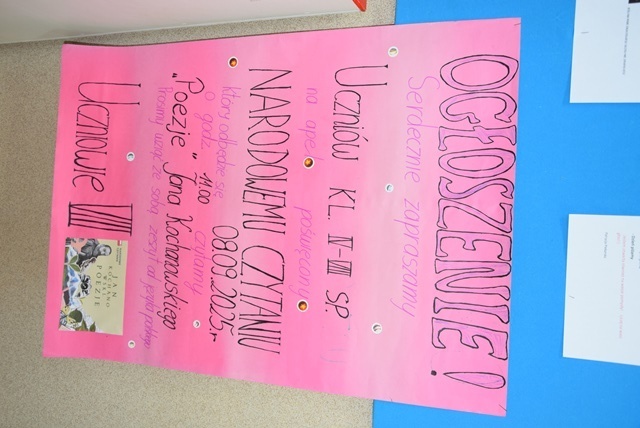 OGŁOSZENIE!
Serdecznie zapraszamy
Uczniów KL. IV-VIII SP.
na apel poświęcony
NARODOWEMU CZYTANIU
który odbędzie się 08.09.2025r.
o godz. 11.00
" czytamy
"Poezje Jana Kochanowskiego
Prosimy wziąć ze sobą zeszyt od języka polskiego
Uczniowie VIII
JAN
KOCHANO
WSKI
POEZJE